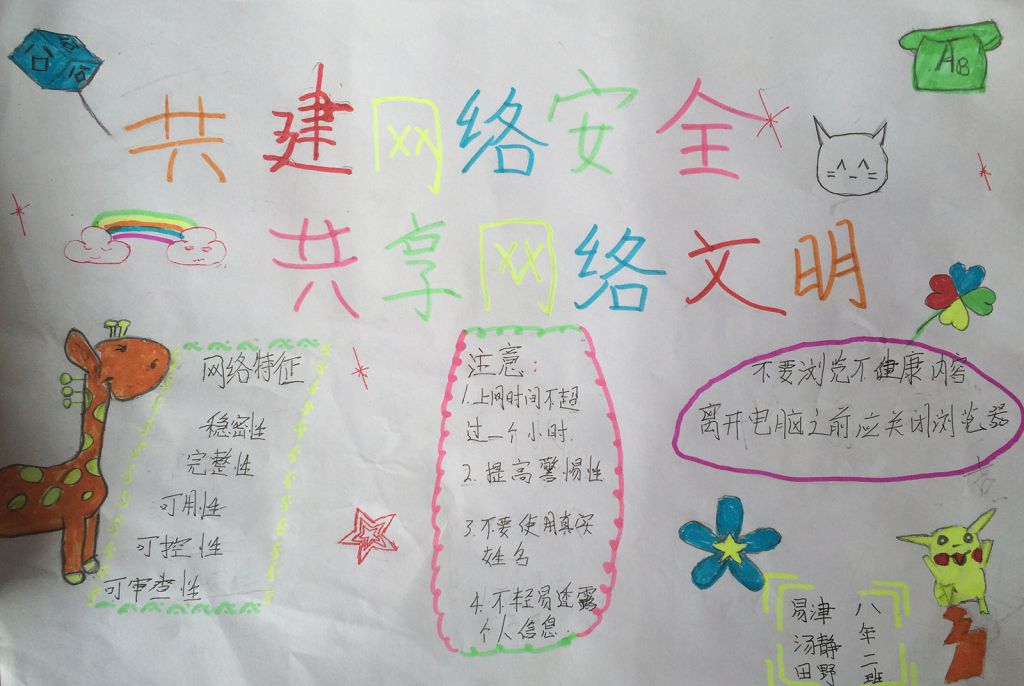 共建网络安全
共享网络文明
AB
网络特征
稳密性
完整性
可用性
可控性
可审查性
注意:
1.上网时间不超
过一个小时.
2.提高警惕性
3.不要使用真实
姓名
4.不轻易透露
个人信息.
不要浏览不健康内容
离开电脑之前应关闭浏览器
八年二班
易津
汤静
田野